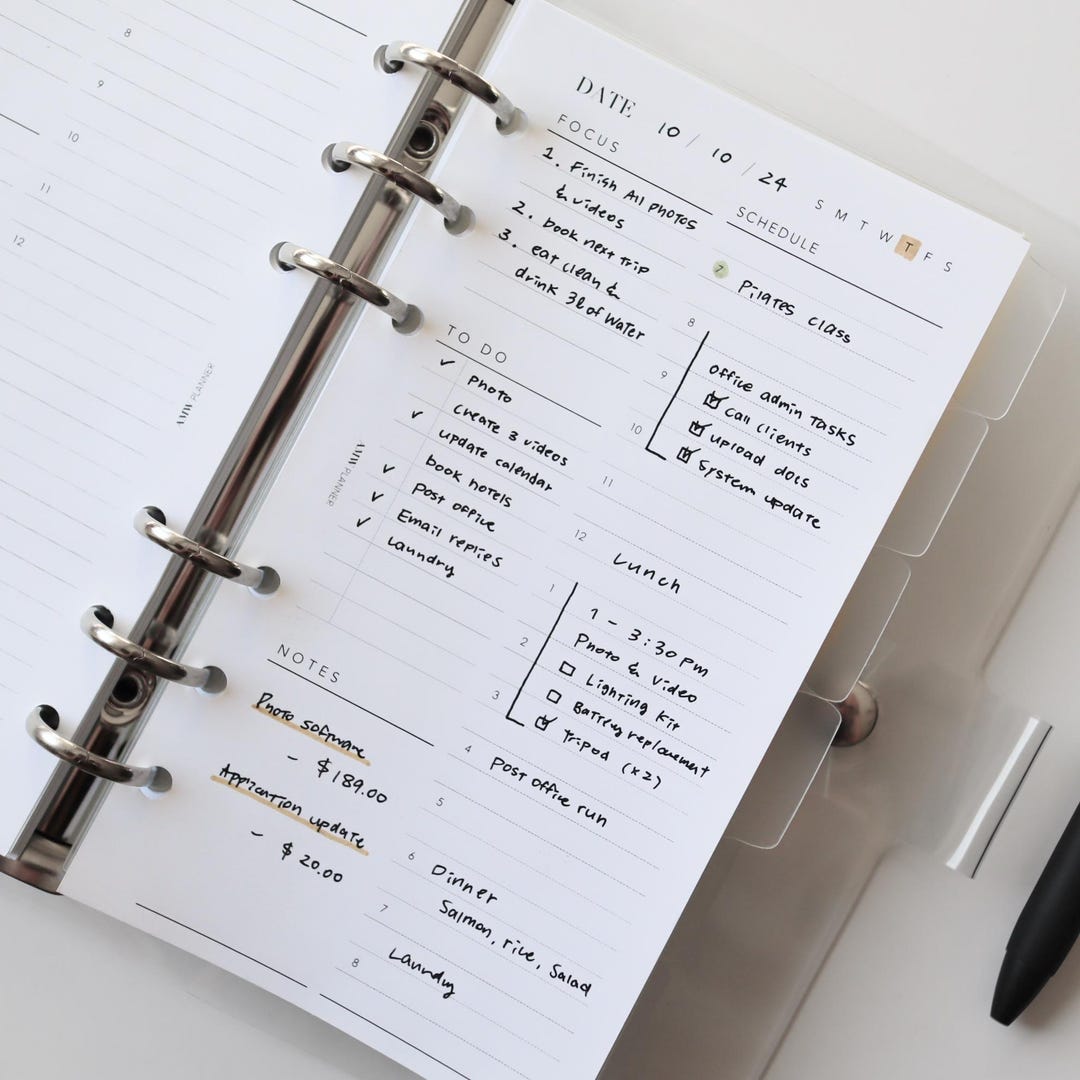 8
9
10
11
12
AMW PLANNER
DATE 10 / 10 / 24
S M T W T F S
FOCUS
1. Finish All photos
& videos
2. book next trip
3. eat clean &
drink 3l of water
TO DO
✓ Photo
create 3 videos
✓ update calendar
book hotels
✓ Post office
✓ Email replies
✓ Laundry
AMW PLANNER
NOTES
Photo software
- $189.00
Application update
- $20.00
SCHEDULE
7 Pilates class
8
9 office admin tasks
☑ call clients
10 ☑ upload docs
☑ system update
11
12 Lunch
1
1 - 3:30 pm
2 Photo & video
☐ Lighting kit
3 ☐ Battery replacement
☑ Tripod (x2)
4 Post office run
5
6 Dinner
Salmon, rice, salad
7
Laundry
8